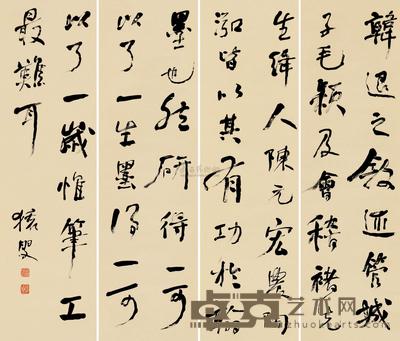 韓退之敘述管城
子毛穎及會稽褚先
生絳人陳元宏農陶
泓皆以其有功於翰
墨也然研得一可
以了一生墨得一可
以了一歲惟筆工
最難耳
猨叟
卓克艺术网